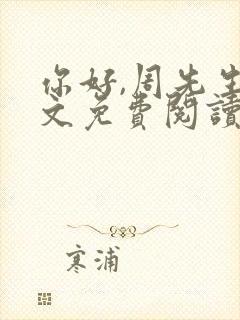 你好,周先生
文免費閱讀
寒浦